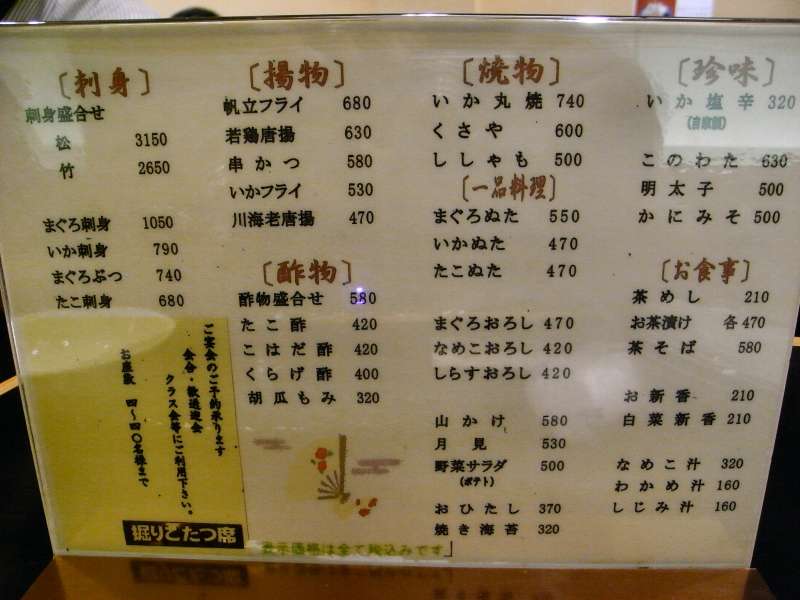 〔刺身〕
刺身盛合せ
松 3150
竹 2650
まぐろ刺身 1050
いか刺身 790
まぐろぶつ 740
たこ刺身 680
〔揚物〕
帆立フライ 680
若鶏唐揚 630
串かつ 580
いかフライ 530
川海老唐揚 470
〔酢物〕
酢物盛合せ 580
たこ酢 420
こはだ酢 420
くらげ酢 400
胡瓜もみ 320
〔焼物〕
いか丸焼 740
くさや 600
ししゃも 500
〔一品料理〕
まぐろぬた 550
いかぬた 470
たこぬた 470
まぐろおろし 470
なめこおろし 420
しらすおろし 420
山かけ 580
月見 530
野菜サラダ 500
(ポテト)
おひたし 370
焼き海苔 320
〔珍味〕
いか塩辛 320
(自家製)
このわた 630
明太子 500
かにみそ 500
〔お食事〕
茶めし 210
お茶漬け 各470
茶そば 580
お新香 210
白菜新香 210
なめこ汁 320
わかめ汁 160
しじみ汁 160
ご宴会のご予約承ります
会合・歓送迎会
クラス会等にご利用下さい。
お座敷 四〜四〇名様まで
掘りごたつ席
表示価格は全て税込みです。